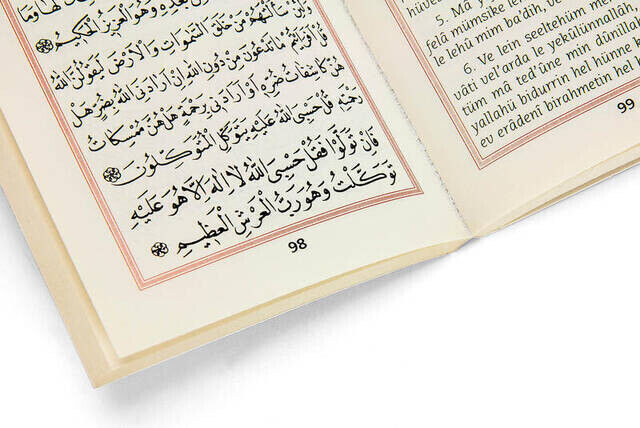 لَهَا وَمَا
بَعْدِهِ وَهُوَ الْعَزِيزُ الْحَكِيمُ
سَأَلْتَهُمْ مَنْ خَلَقَ السَّمٰوَاتِ وَالْاَرْضَ لَيَقُولُنَّ اللّٰهُ
قُلْ اَفَرَاَيْتُمْ مَا تَدْعُونَ مِنْ دُونِ اللّٰهِ اِنْ اَرَادَنِيَ اللّٰهُ بِضُرٍّ هَلْ
هُنَّ كَاشِفَاتُ ضُرِّهِ اَوْ اَرَادَنِي بِرَحْمَةٍ هَلْ هُنَّ مُمْسِكَاتُ
رَحْمَتِهِ قُلْ حَسْبِيَ اللّٰهُ عَلَيْهِ يَتَوَكَّلُ الْمُتَوَكِّلُونَ
فَاِنْ تَوَلَّوْا فَقُلْ حَسْبِيَ اللّٰهُ لَا اِلٰهَ اِلَّا هُوَ عَلَيْهِ
تَوَكَّلْتُ وَهُوَ رَبُّ الْعَرْشِ الْعَظِيمِ
98
hüve
5. Mâ y
felâ mümsike le
le lehü mim ba'dih, ve
6. Ve lein seeltehüm me
vâti vel'arda le yekûlünnallâh,
tüm mâ ted'ûne min dûnilla
yallahü bidurrin hel hünne
ev erâdenî birahmetin hel h
99